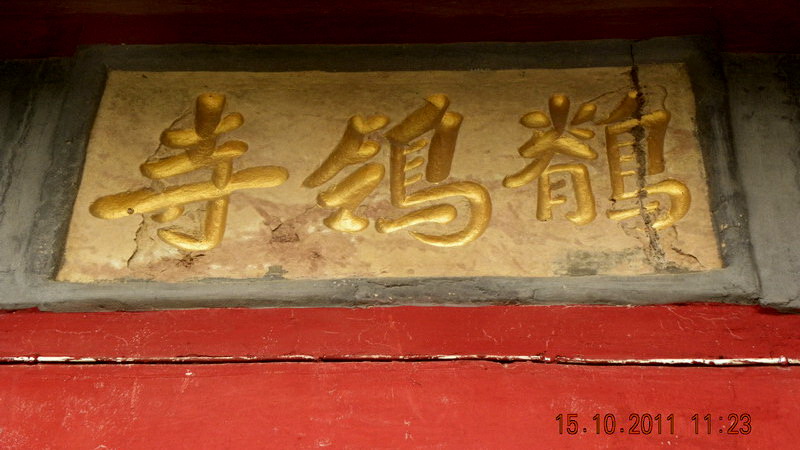 鶺鴒寺
15.10.2011 11:23